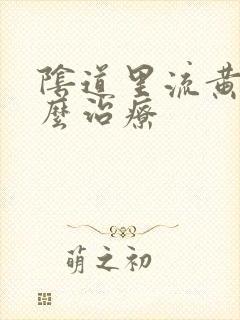 陰道里流黃
麼治療
萌之初